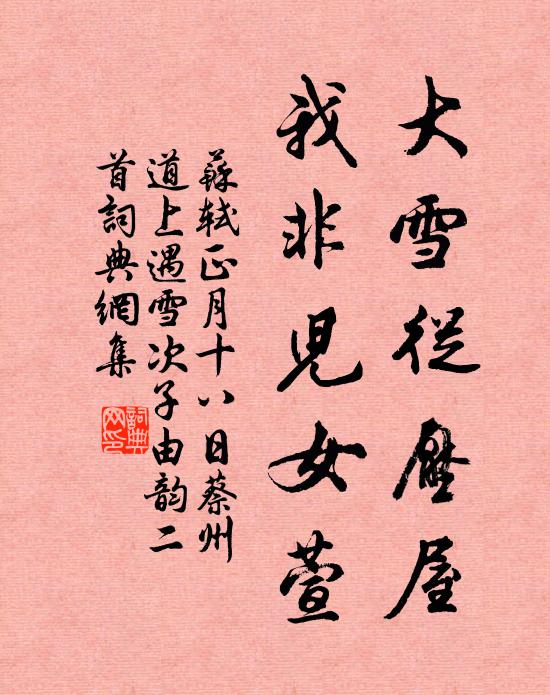 大雪從壓屋
我非兒女萱
蘇軾正月十八日蔡州
道上遇雪次子由韵二
首詞典網集
詞典
网印